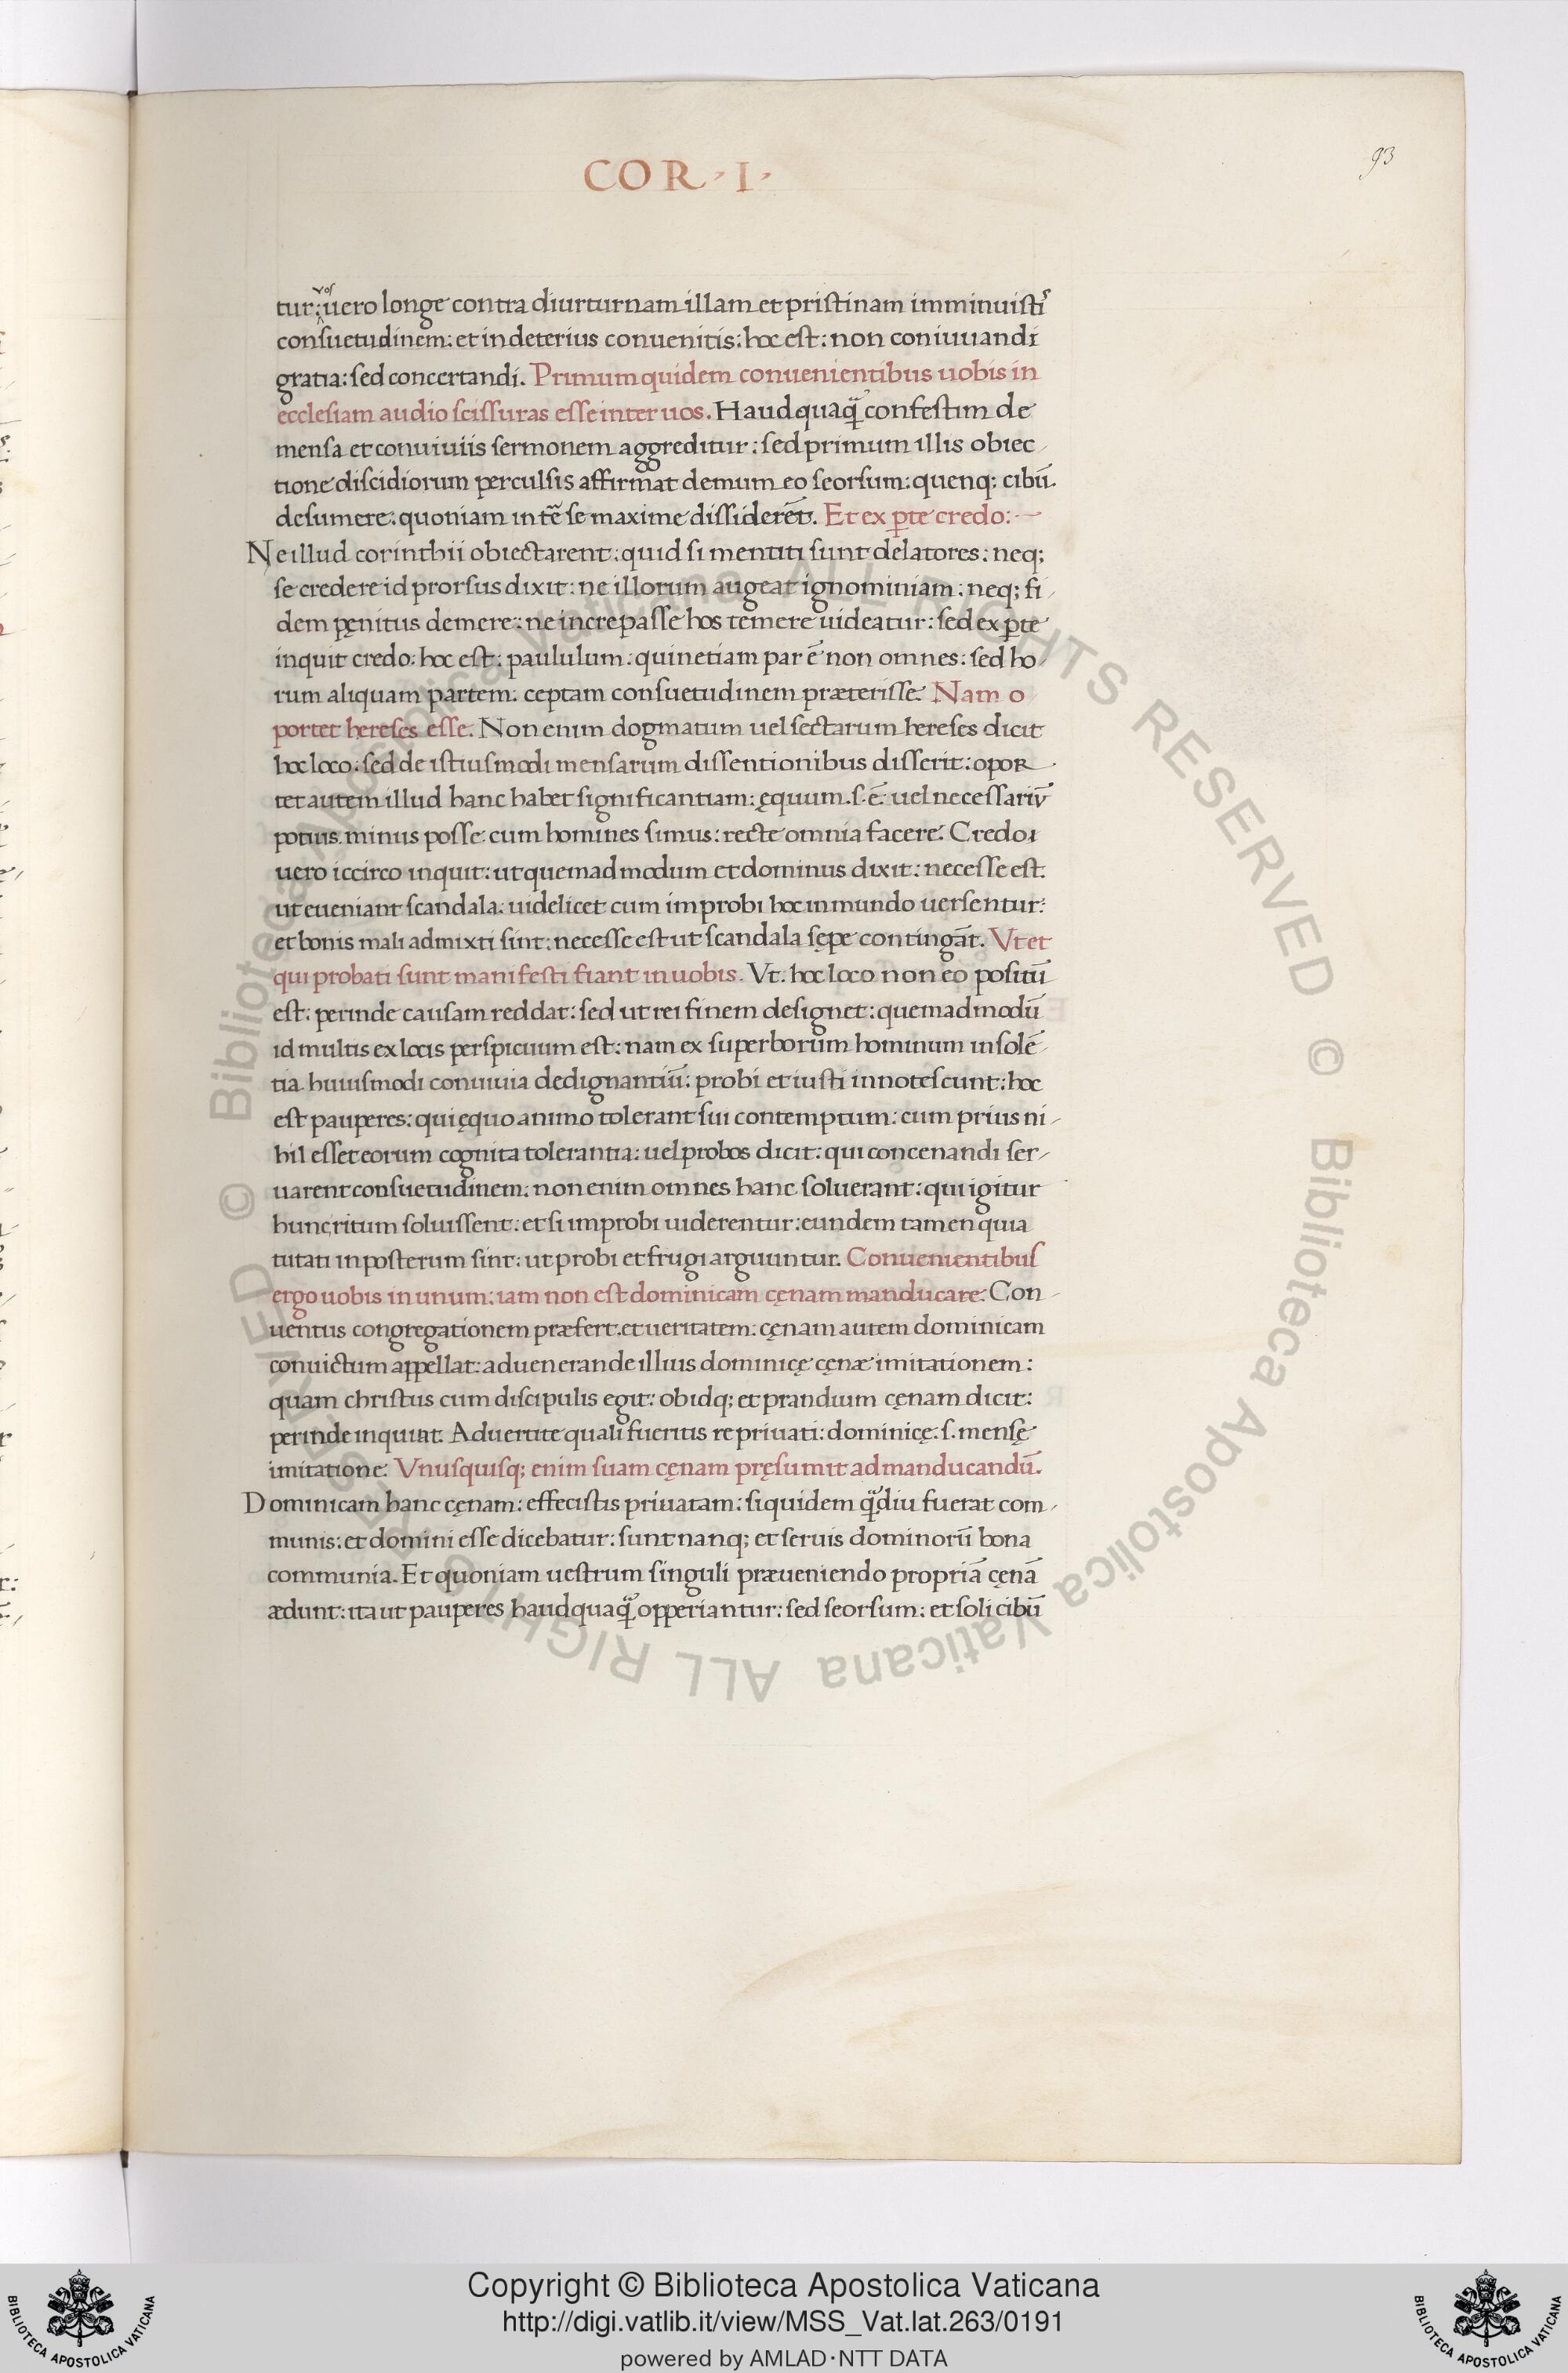 COR · I ·
93
vos
tur: uero longe contra diurturnam illam et pristinam imminuisti
consuetudinem: et in deterius conuenitis: hoc est: non coniuuandi
gratia: sed concertandi. Primum quidem conuenientibus uobis in
ecclesiam audio scissuras esse inter uos. Haud quaq̃ confestim de
mensa et conuiuiis sermonem aggreditur: sed primum illis obiec
tione discidiorum perculsis affirmat demum eo seorsum: quenq; cibū
desumere: quoniam int̃e se maxime dissiderēt. Et ex ꝑte credo:
Ne illud corinthii obiectarent: quid si mentiti sunt delatores: neq;
se credere id prorsus dixit: ne illorum augeat ignominiam: neq; fi
dem pęnitus demere: ne increpasse hos temere uideatur: sed ex ꝑte
inquit credo: hoc est: paululum: quinetiam par ē non omnes: sed ho
rum aliquam partem: ceptam consuetudinem præterisse. Nam o
portet hereses esse. Non enim dogmatum uel sectarum hereses dicit
hoc loco: sed de istiusmodi mensarum dissentionibus disserit: opor
tet autem illud hanc habet significantiam: ęquum .s. ē. uel necessariū
potius. minus posse: cum homines simus: recte omnia facere. Credo
uero iccirco inquit: ut quemadmodum et dominus dixit: necesse est
ut eueniant scandala: uidelicet cum improbi hoc in mundo uersentur:
et bonis mali admixti sint: necesse est ut scandala sępe contingāt. Vt et
qui probati sunt manifesti fiant in uobis. Vt. hoc loco non eo positū
est: perinde causam reddat: sed ut rei finem designet: quemadmodū
id multis ex locis perspicuum est: nam ex superborum hominum insolē
tia huiusmodi conuiuia dedignantiū: probi et iusti innotescunt: hoc
est pauperes: qui ęquo animo tolerant sui contemptum: cum prius ni
hil esset eorum cognita tolerantia: uel probos dicit: qui concenandi ser
uarent consuetudinem: non enim omnes hanc soluerant: qui igitur
hunc ritum soluissent: et si improbi uiderentur: eundem tamen quia
tutati in posterum sint: ut probi et frugi arguuntur. Conuenientibus
ergo uobis in unum: iam non est dominicam cęnam manducare. Con
uentus congregationem præfert. et ueritatem: cęnam autem dominicam
conuictum appellat: ad uenerande illius dominicę cęnæ imitationem:
quam christus cum discipulis egit: obidq; et prandium cęnam dicit:
perinde inquiat. Aduertite quali fueritis re priuati: dominicę .s. mensę
imitatione. Vnusquisq; enim suam cęnam pręsumit ad manducandū.
Dominicam hanc cęnam: effecistis priuatam: siquidem q̃diu fuerat com
munis: et domini esse dicebatur: sunt nanq; et seruis dominorū bona
communia. Et quoniam uestrum singuli præueniendo propriā cęnā
ædunt: ita ut pauperes haud quaq̃ opperiantur: sed seorsum: et soli cibū
© Biblioteca Apostolica Vaticana ALL RIGHTS RESERVED © Biblioteca Apostolica Vaticana ALL RIGHTS RESERVED
Copyright © Biblioteca Apostolica Vaticana
http://digi.vatlib.it/view/MSS_Vat.lat.263/0191
powered by AMLAD·NTT DATA
BIBLIOTECA APOSTOLICA VATICANA
BIBLIOTECA APOSTOLICA VATICANA